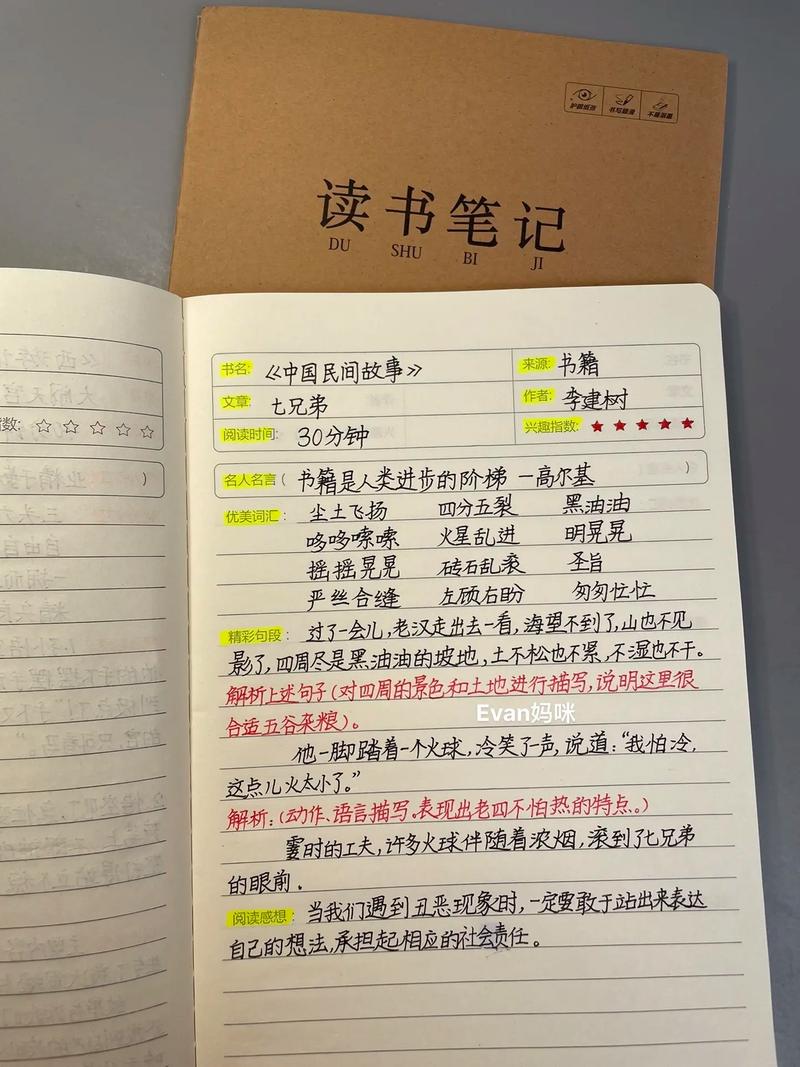 护眼纸张 书写顺滑 不易洇墨
读书笔记
DU SHU BI JI
书名: 《中国民间故事》 来源: 书籍
文章: 七兄弟 作者: 李建树
阅读时间: 30分钟 兴趣指数: ★★★★★
名人名言( 书籍是人类进步的阶梯 —高尔基 )
优美词汇: 尘土飞扬 四分五裂 黑油油
哆哆嗦嗦 火星乱迸 明晃晃
摇摇晃晃 砖石乱滚 圣旨
严丝合缝 左顾右盼 匆匆忙忙
精彩句段: 过了一会儿,老汉走出去一看,海望不到了,山也不见
影了,四周尽是黑油油的坡地,土不松也不紧,不湿也不干。
解析上述句子(对四周的景色和土地进行描写,说明这里很
合适五谷杂粮)。
Evan妈咪
他一脚踏着一个火球,冷笑了声,说道:“我怕冷,
这点儿火太小了。”
解析:(动作、语言描写。表现出老四不怕热的特点。)
霎时的工夫,许多火球伴随着浓烟,滚到了七兄弟
的眼前.
阅读感想: 当我们遇到丑恶现象时,一定要敢于站出来表达
自己的想法,承担起相应的社会责任。
指数: ☆☆☆☆☆